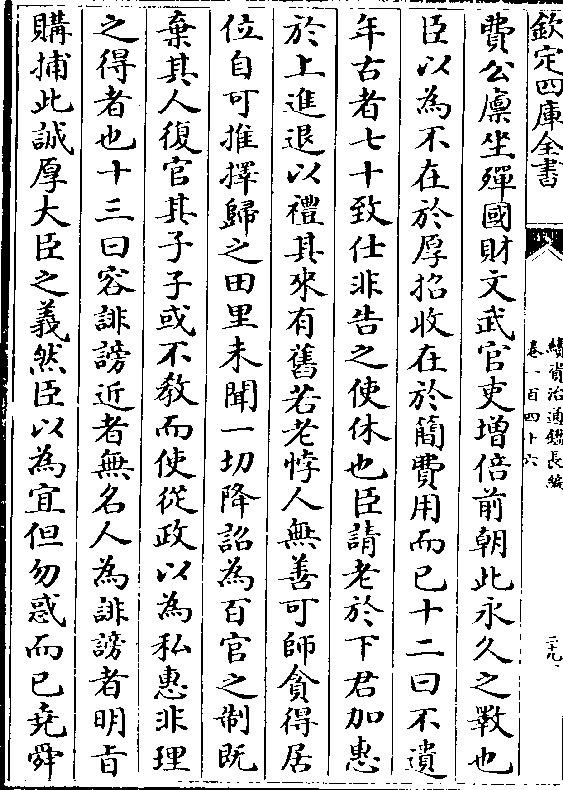 欽定四庫全書
續資治通鑑長編
卷一百四十六
二十九
費公廪坐殫國財文武官吏增倍前朝此永久之斁也
臣以為不在於厚招收在於簡費用而已十二曰不遺
年古者七十致仕非告之使休也臣請老於下君加惠
於上進退以禮其來有舊若老悖人無善可師貪得居
位自可推擇歸之田里未聞一切降詔為百官之制既
棄其人復官其子子或不教而使從政以為私惠非理
之得者也十三曰容誹謗近者無名人為誹謗者明㫖
購捕此誠厚大臣之義然臣以為宜但勿惑而已堯舜